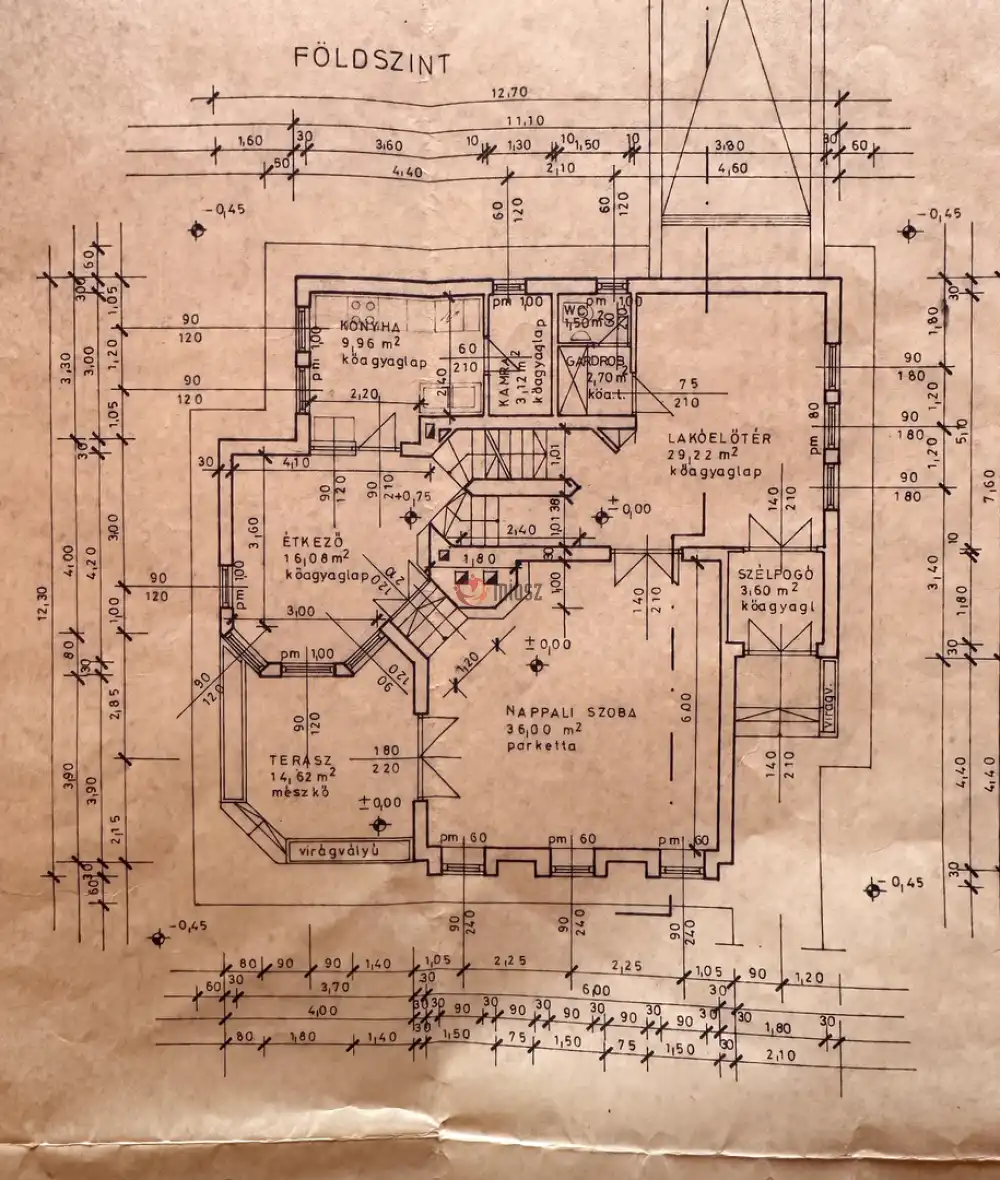 FÖLDSZINT
12,70
11,10
1,60 30 3,60 10 1,30 10 1,50 10 3,80 30 60
50 4,40 2,10 4,60
60 120 60 120
-0,45 -0,45
pm 1,00 pm 1,00
KONYHA
9,96 m²
kőagyaglap
pm 1,00
2,20
2,40
60
210
KAMRA
3,12 m²
kőagyaglap
WC
1,50 m²
GARDROB
2,70 m²
kőa.l.
75
210
LAKÓELŐTÉR
29,22 m²
kőagyaglap
pm 80
90
120
90
120
90
180
90
180
90
180
30 4,10
90 120
90 210
+0,75
1,01
38
1,01
2,40
±0,00
140 210
3,60
ÉTKEZŐ
16,08 m²
kőagyaglap
pm 1,00
90
120
3,00
pm 1,00
120 210
1,80
30
1,00
miosz
140 210
SZÉLFOGÓ
3,60 m²
kőagyagl
±0,00
1,20
90 120
90 120
90 120
NAPPALI SZOBA
36,00 m²
parketta
6,00
virágv.
140 210
TERASZ
14,62 m²
mészkő
180
220
±0,00
virágvályú
pm 60 pm 60 pm 60
90 240 90 240 90 240
-0,45
-0,45
12,30
3,30 4,00 80 3,90
60 30 3,00 30 4,20 30 3,90 30 60
1,05 1,20 1,05 3,00 1,00 2,85 2,15
30 1,80 1,20 1,20 10 1,80 30 4,40 30
5,10 3,40
7,60 4,40
80 90 90 1,40 1,05 2,25 2,25 1,05 90 1,20
60 30 3,70 30 6,00 30
4,00 30 30 90 30 90 30 90 30 90 30 90 30 30 1,80 30
80 1,80 1,40 30 1,50 75 1,50 75 1,50 30 2,10